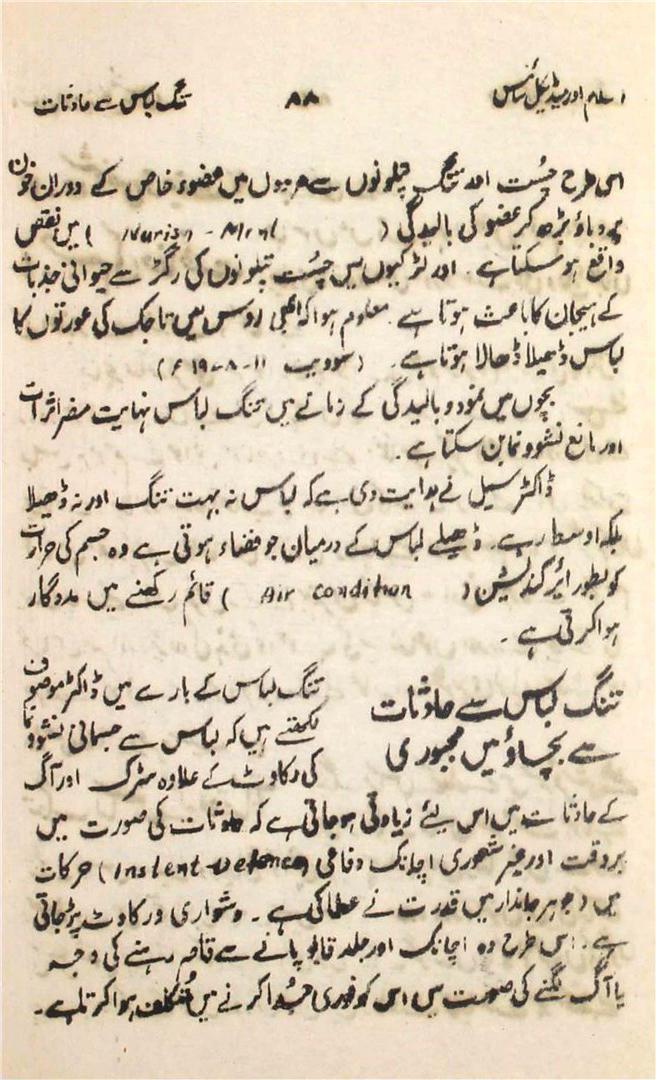 اسلام اور میڈیکل سائنس ۸۸ تنگ لباس سے حادثات
اسی طرح چُست اور تنگ پتلونوں سے مردوں میں عضوء خاص کے دوران خون
پر دباؤ بڑھ کر عضو کی بالیدگی ( Nurish - Ment ) میں نقص
واقع ہو سکتا ہے۔ اور لڑکیوں میں چُست پتلونوں کی رگڑ سے حیوانی جذبات
کے ہیجان کا باعث ہوتا ہے۔ معلوم ہوا کہ ابھی روس میں تاجک کی عورتوں کا
لباس ڈھیلا ڈھالا ہوتا ہے۔ (سوویت ۱۱-۸-۱۹ ء)
بچوں میں نمود و بالیدگی کے زمانے میں تنگ لباس نہایت مضر اثرات
اور مانع نشوونما بن سکتا ہے۔
ڈاکٹر سیل نے ہدایت دی ہے کہ لباس نہ بہت تنگ اور نہ ڈھیلا
بلکہ اوسط رہے۔ ڈھیلے لباس کے درمیان جو فضاء ہوتی ہے وہ جسم کی حرارت
کو بطور ائر کنڈیشن ( Air condition ) قائم رکھنے میں مددگار
ہوا کرتی ہے۔
تنگ لباس سے حادثات
سے بچاؤ میں مجبوری
تنگ لباس کے بارے میں ڈاکٹر موصوف
لکھتے ہیں کہ لباس سے جسمانی نشوونما
کی رکاوٹ کے علاوہ سڑک اور آگ
کے حادثات میں اس لیئے زیادتی ہو جاتی ہے کہ حادثات کی صورت میں
بر وقت اور غیر شعوری اچانک دفاعی (Instent-Defence) حرکات
میں (جو ہر جاندار میں قدرت نے عطا کی ہے۔ دشواری و رکاوٹ پڑ جاتی
ہے۔ اس طرح وہ اچانک اور جلد قابو پانے سے قاصر رہنے کی وجہ
یا آگ لگنے کی صورت میں اس کو فوری جُدا کرنے میں مُتکلف ہوا کرتا ہے۔